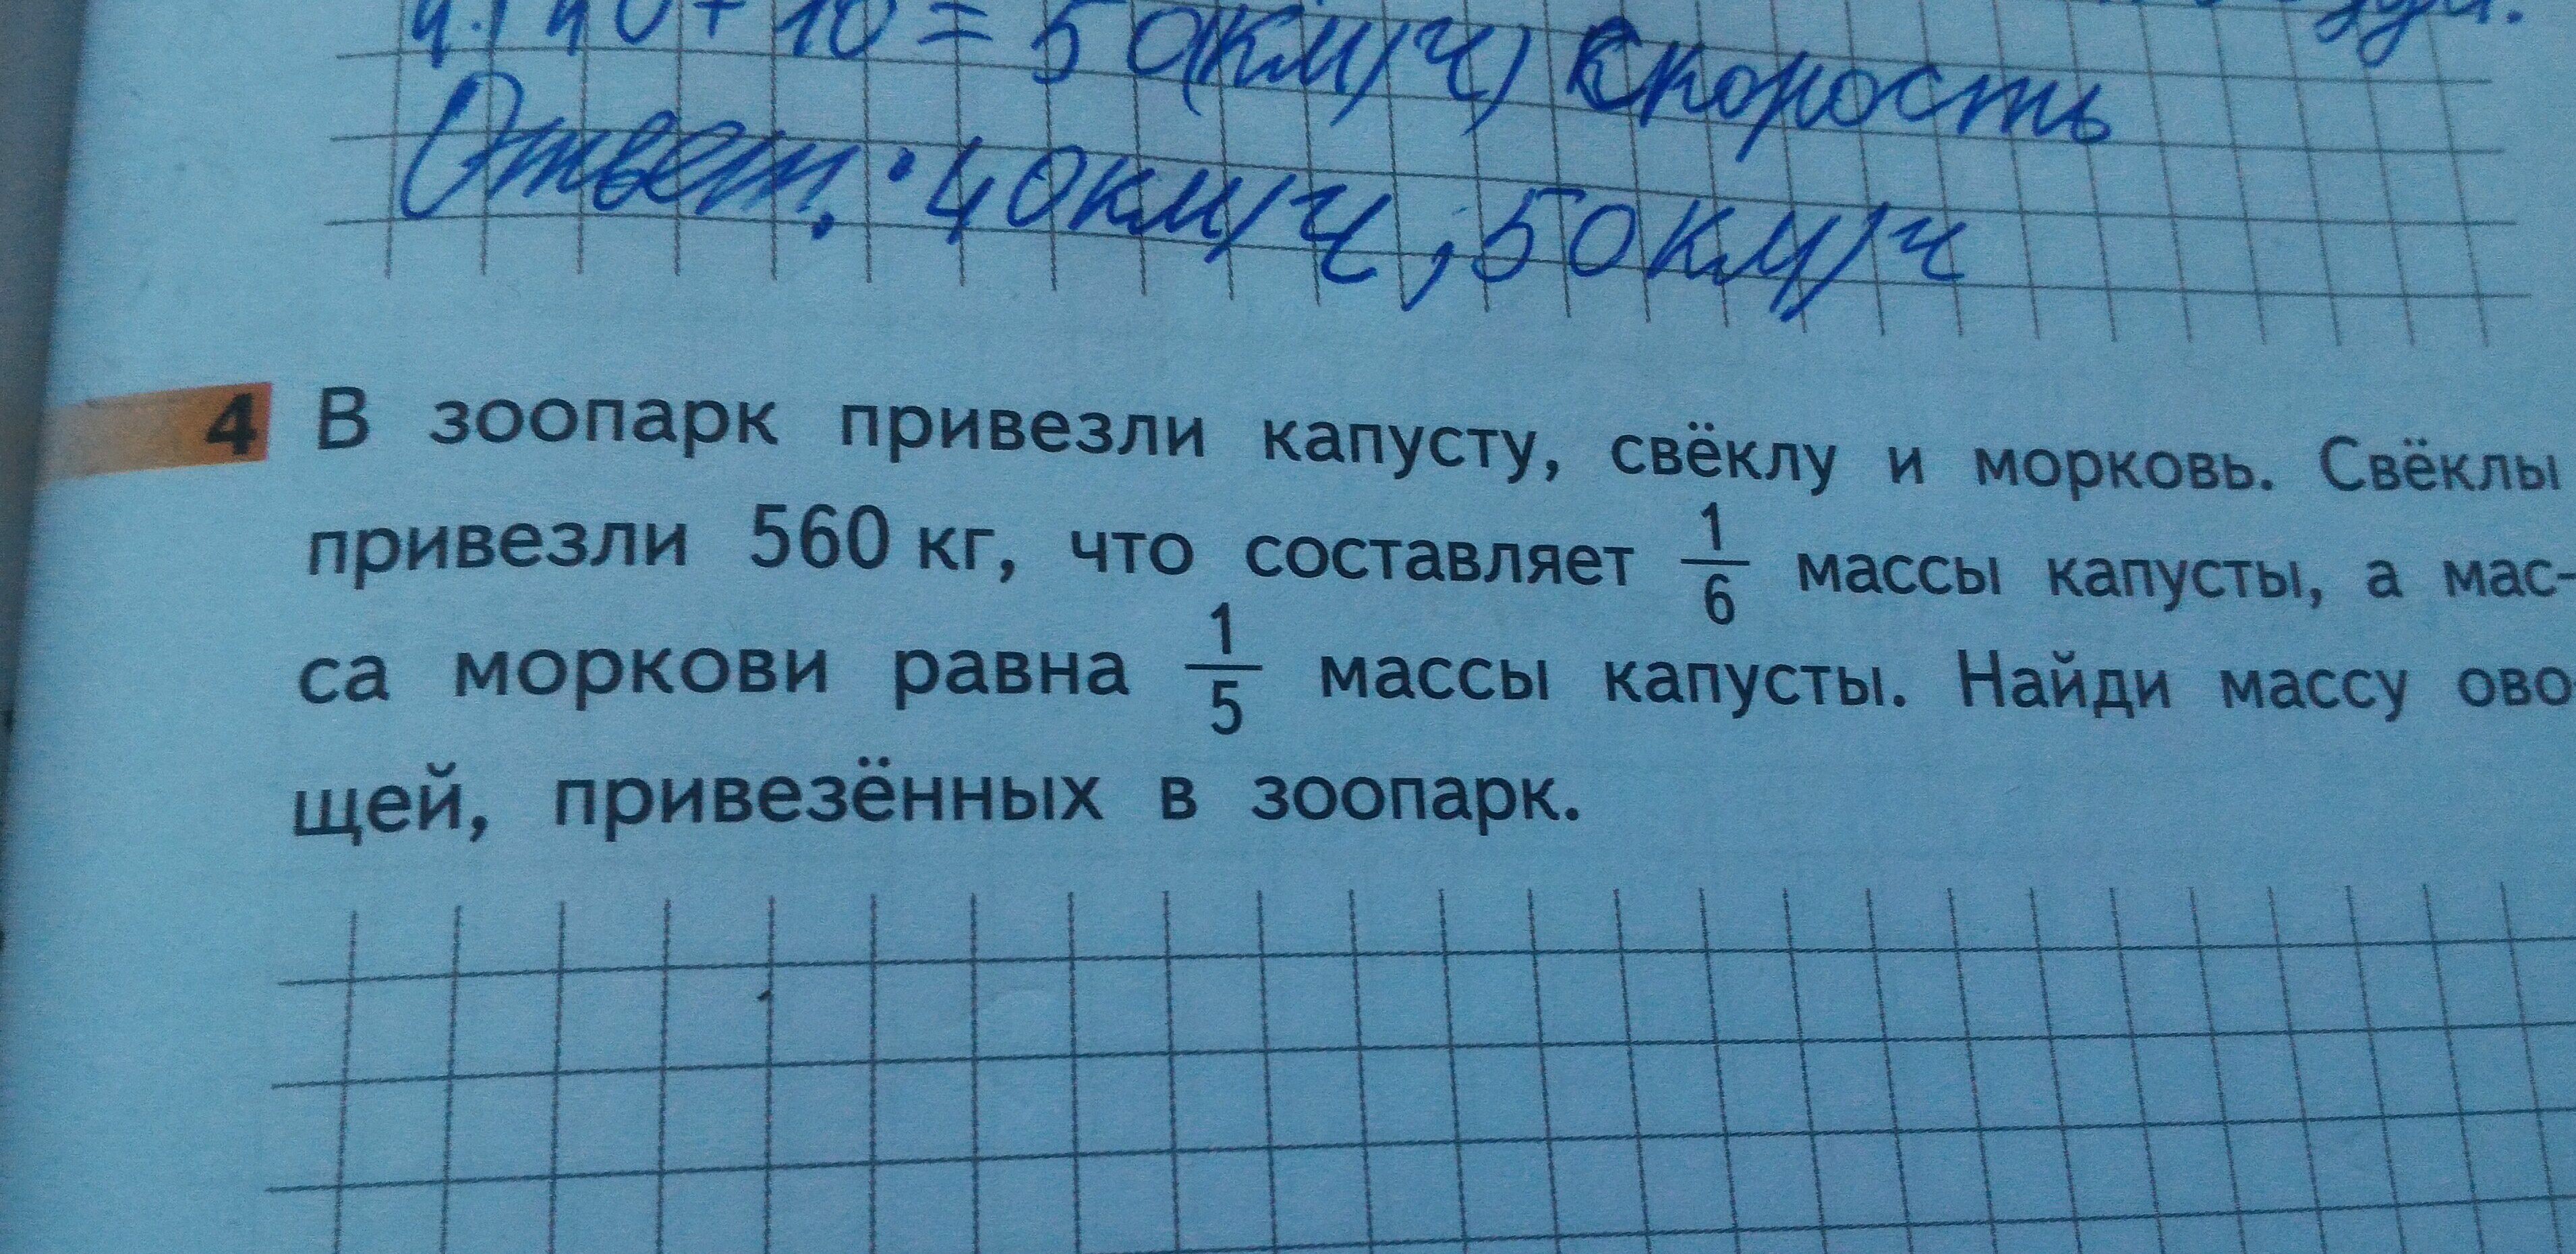 4.) 40+10=50(км/ч) скорость
Ответ: 40км/ч, 50км/ч
4 В зоопарк привезли капусту, свёклу и морковь. Свёклы
привезли 560 кг, что составляет 1/6 массы капусты, а мас-
са моркови равна 1/5 массы капусты. Найди массу ово-
щей, привезённых в зоопарк.